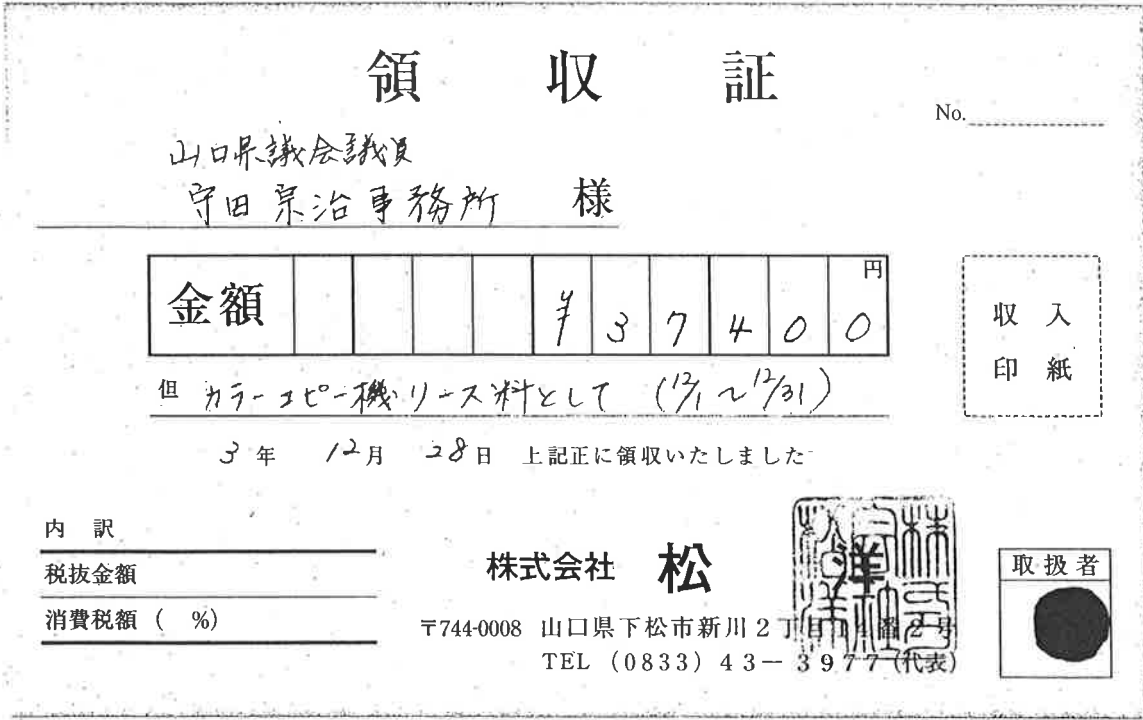 領収証
No.
山口県議会議員
守田宗治事務所 様
金額 ¥37400 円
但 カラーコピー機リース料として (12/1~12/31)
3年 12月 28日 上記正に領収いたしました
収入
印紙
内訳
税抜金額
消費税額 ( %)
株式会社 松洋
〒744-0008 山口県下松市新川2丁目14番2号
TEL (0833) 43-3977 (代表)
取扱者